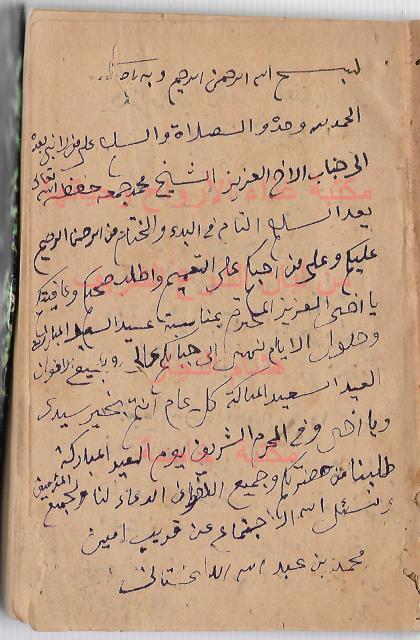 بسم الله الرحمن الرحيم وبه
الحمد لله وحده والصلاة والسلام على من لا نبي بعده
الى جناب الاخ العزيز الشيخ محمد جمعه حفظه الله تعالى
بعد السلام التام في البدء والختام من الرحمن الرحيم
عليكم وعلى من احبكم على التعميم واطلب صحتكم وعافيتكم
يا اخي العزيز المحترم بمناسبة عيد السعيد المبارك
وحلول الايام الى جنابكم وجميع الاخوان
العيد السعيد المباركة كل عام انتم بخير سيدى
ويا اخى وفى المحرم الشريف يوم العيد المباركة
طلبنا من حضرتكم وجميع الاخوان الدعاء لنا ولجميع المؤمنين
ونسئل الله الاجتماع عن قريب امين
محمد بن عبد الله الداغستانى